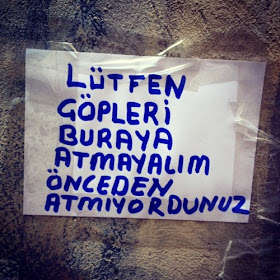 LÜTFEN
GÖPLERİ
BURAYA
ATMAYALIM
ÖNCEDEN
ATMIYORDUNUZ